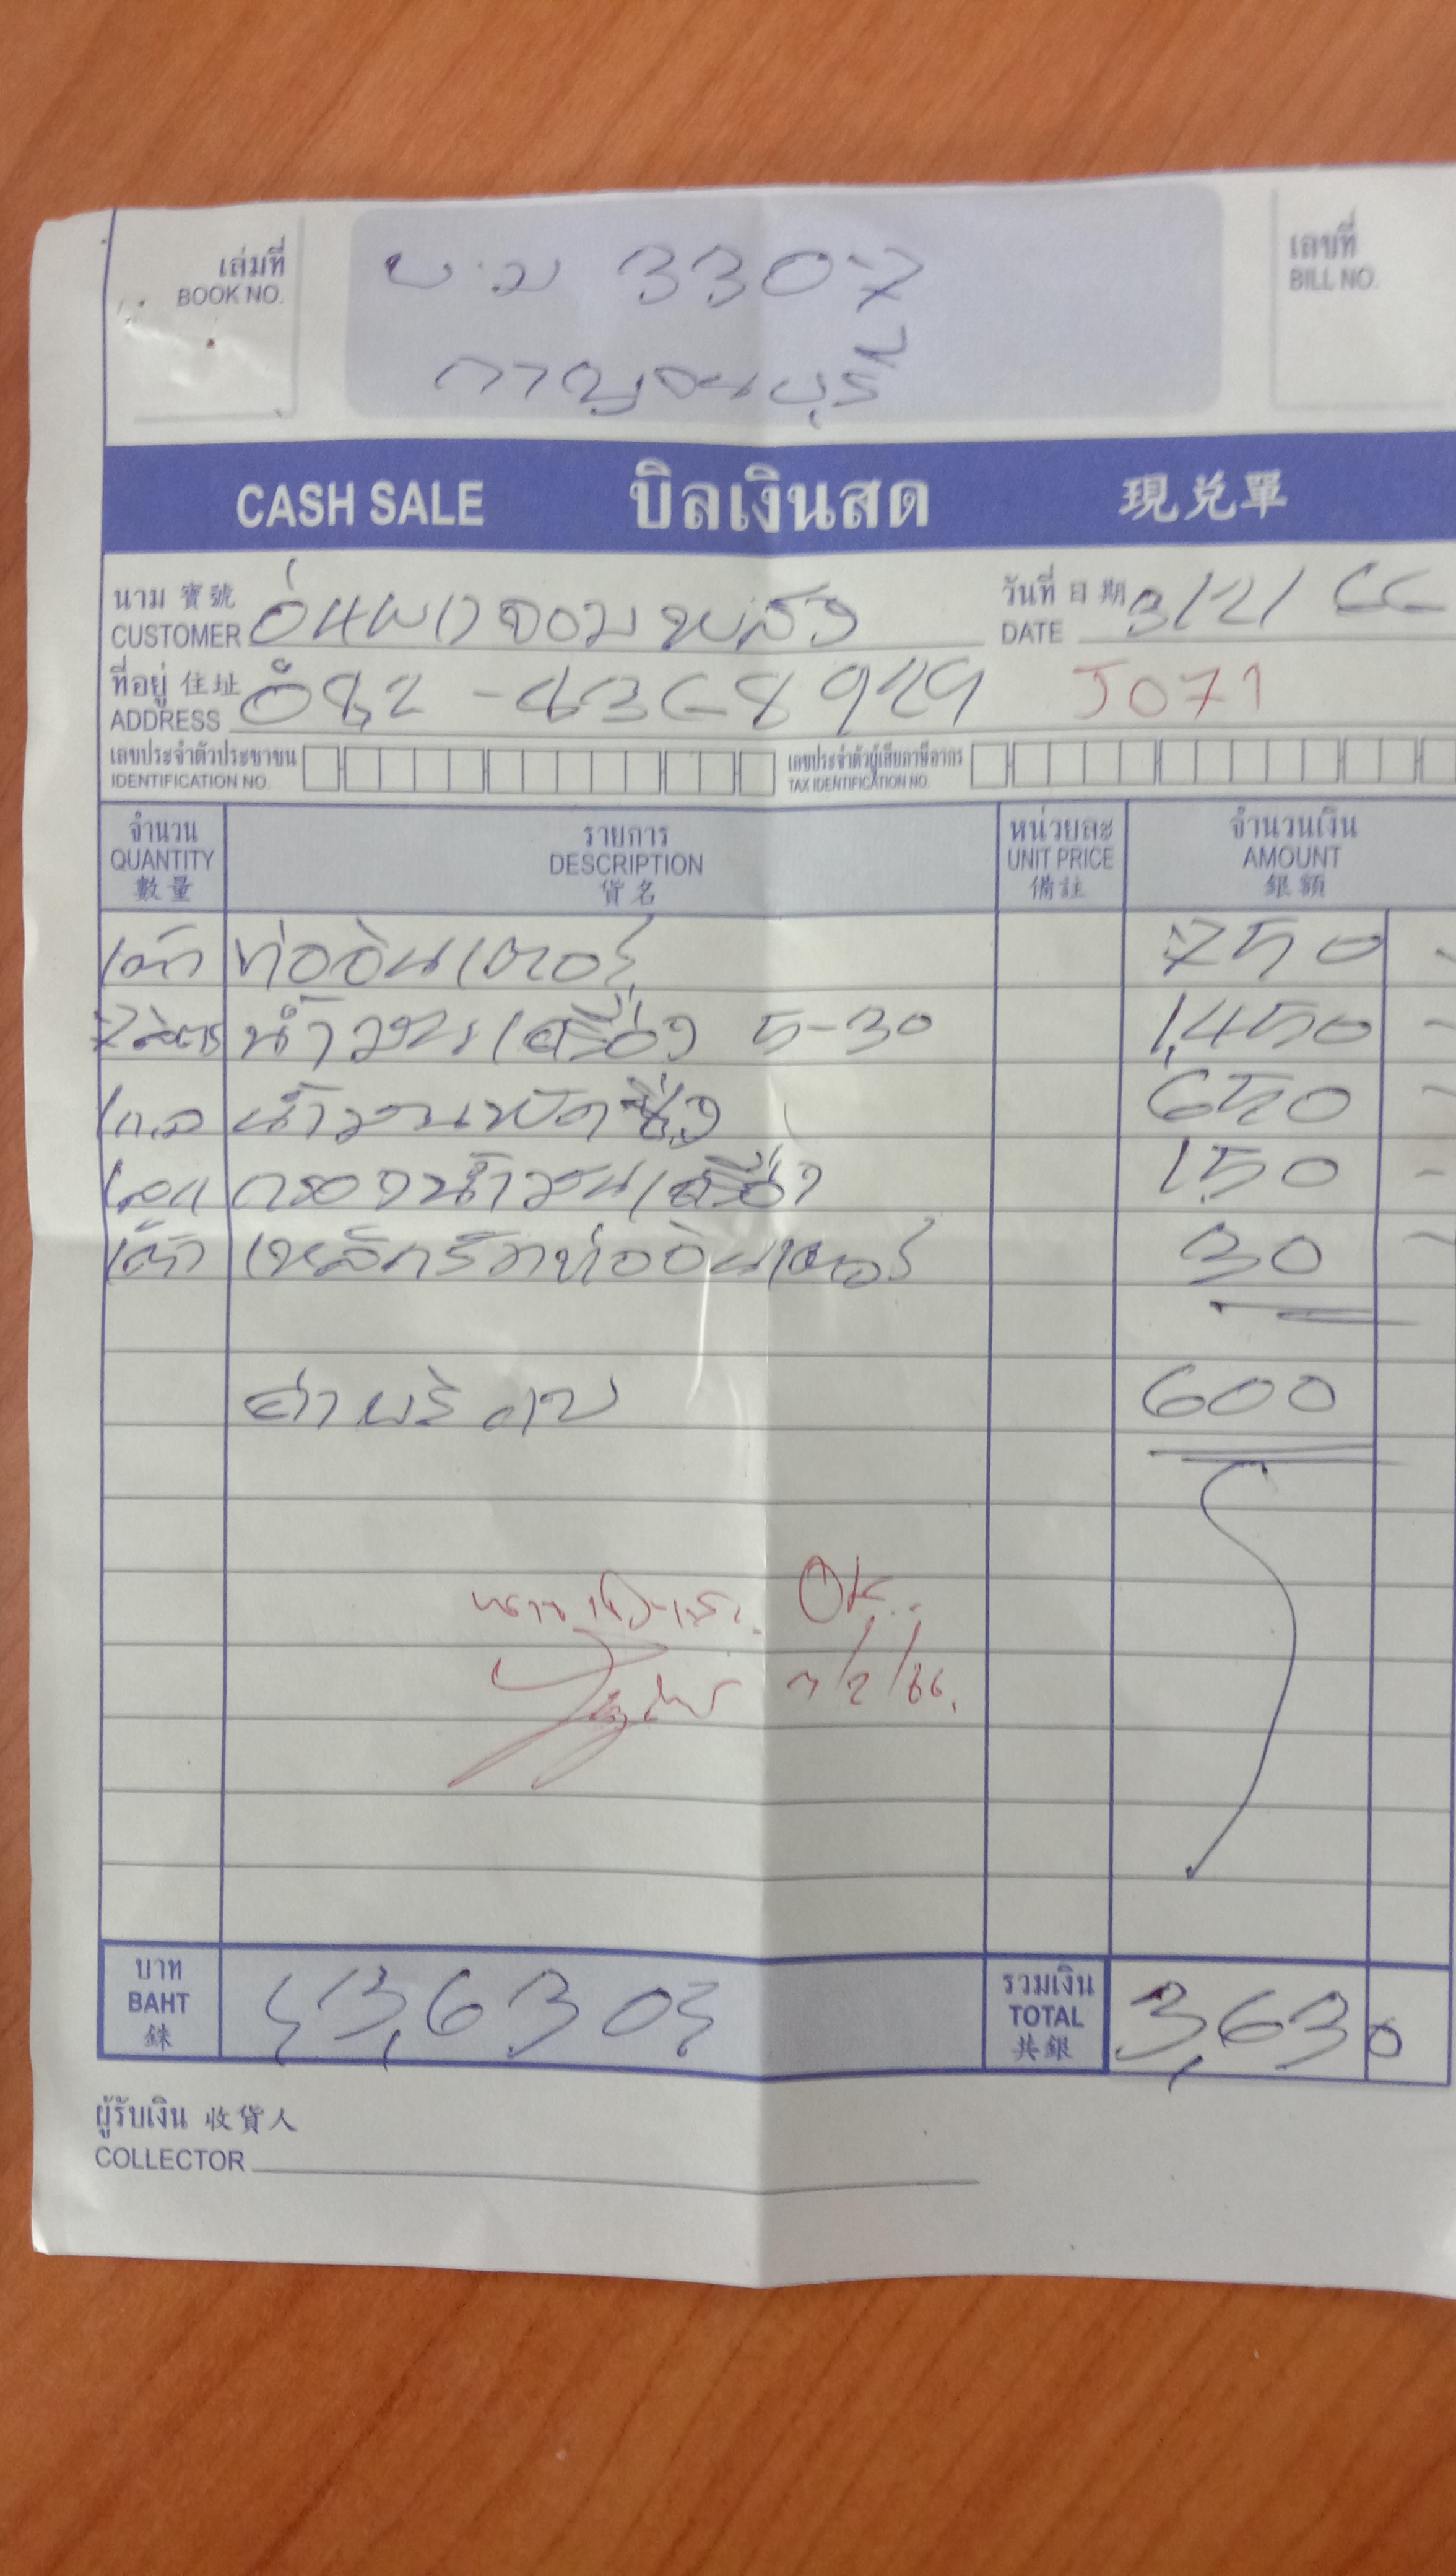 เล่มที่
BOOK NO.
บ.ม 3307
กาญจนบุรี
เลขที่
BILL NO.
CASH SALE บิลเงินสด 現兌單
นาม 寶號
CUSTOMER อู่นพเจอมพลัง
วันที่ 日期
DATE 3/2/66
ที่อยู่ 住址
ADDRESS 082-4368929 J071
เลขประจำตัวประชาชน
IDENTIFICATION NO.
เลขประจำตัวผู้เสียภาษีอากร
TAX IDENTIFICATION NO.
จำนวน รายการ หน่วยละ จำนวนเงิน
QUANTITY DESCRIPTION UNIT PRICE AMOUNT
數量 貨名 備註 銀額
1ตัว ท่ออินเตอร์ 750 -
7ลิตร น้ำมันเครื่อง 5-30 1,450 -
1 น้ำมัน 650 -
1 กรองน้ำมันเครื่อง 150 -
1ตัว เหล็กรัดท่ออินเตอร์ 30 -
ค่าบริการ 600
OK..
3/2/66.
บาท
BAHT
銖
3,630
รวมเงิน
TOTAL
共銀
3,630
ผู้รับเงิน 收貨人
COLLECTOR